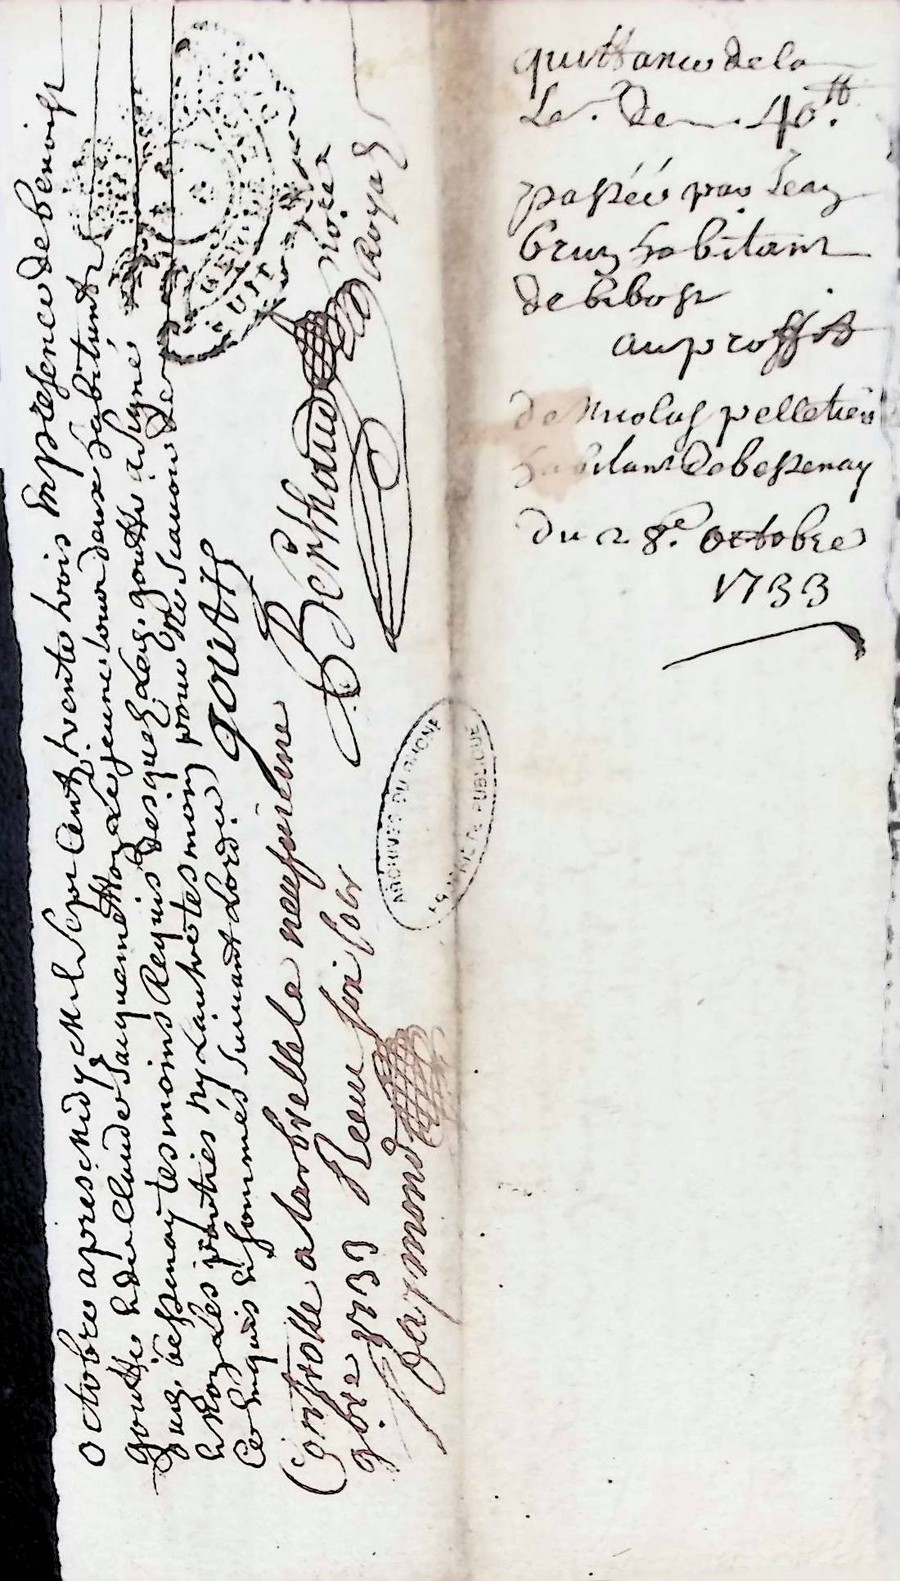 octobre apres midy mil sept cent trente trois En presence de benoist
goutte et de Claude Jacquemetton Le jeune tous deux habitants
dud. bessenay tesmoins Requis desquels led. goutte a signé
et non les parties ny l'autre tesmoin pour ne scavoir de
ce enquis et sommés suivant l'ord.
goutte
Berthaud
No.re Royal
Controllé a larbrelle le neufvieme
9bre 1733 Receu six sols
Raymond
quittance de la
so. de 40.tt
passée par Jean
brun habitant
de bibost
au proffit
de Nicolas pelletier
habitant de bessenay
du 28.e octobre
1733
ARCHIVES DU RHONE
PUBLIQUE